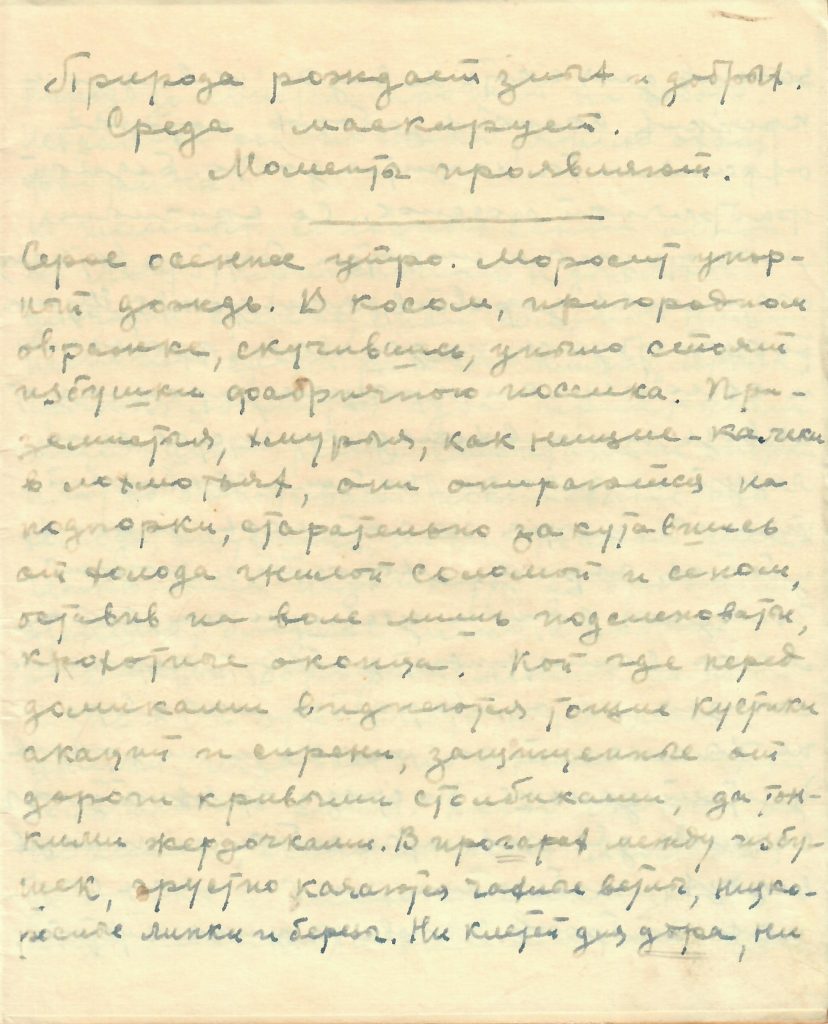 Природа рождает злых и добрых.
Среда маскирует.
Моменты проявляют.
Серое осеннее утро. Моросит упор-
ный дождь. В косом, пригородном
овражке, скучившись, уныло стоят
избушки фабричного поселка. При-
земистыя, хмурыя, как нищие-калеки
в лохмотьях, они опираются на
подпорки, старательно закутавшись
от холода гнилой соломой и сеном,
оставив на воле лишь подслеповатые,
крохотные оконца. Кой где перед
домиками виднеются тощие кустики
акаций и сирени, защищенные от
дороги кривыми столбиками, да тон-
кими жердочками. В прогарах между избу-
шек, грустно качаются чахлые ветлы, низко-
рослые липки и березы. Ни клетей для добра, ни